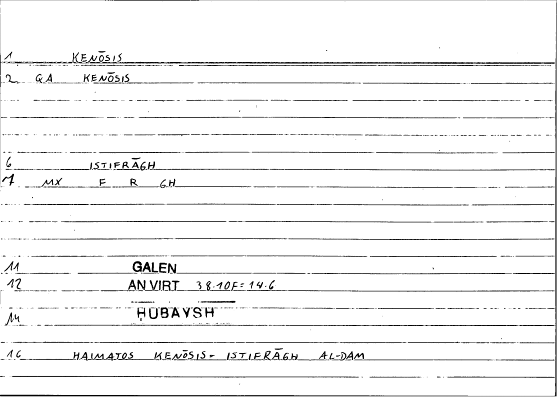 1 KENŌSIS
2 QA KENŌSIS
6 ISTIFRĀGH
7 MX F R GH
11 GALEN
12 AN VIRT 38.10F=14.6
14 ḤUBAYSH
16 HAIMATOS KENŌSIS= ISTIFRĀGH AL-DAM